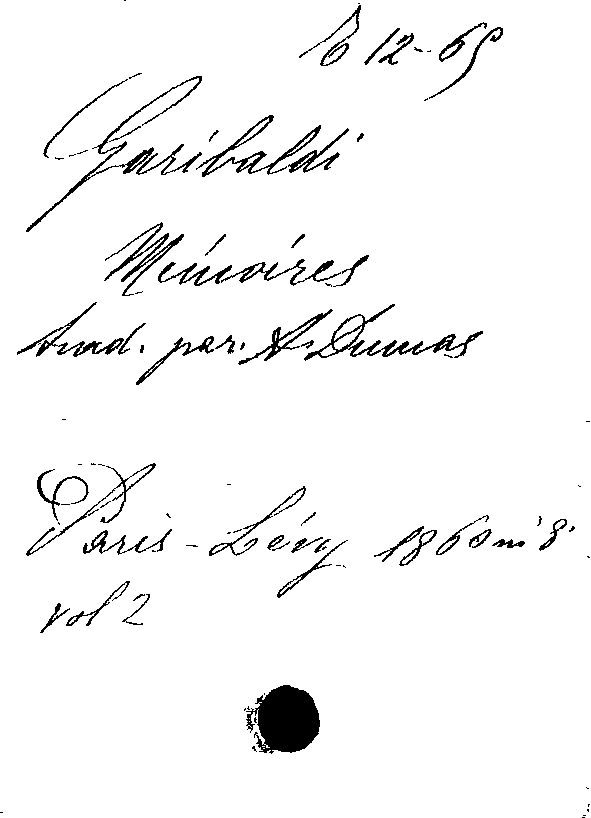 E 12-65
Garibaldi
Mémoires
trad. par. A. Dumas
Paris - Lévy 1860 in 8°
vol 2